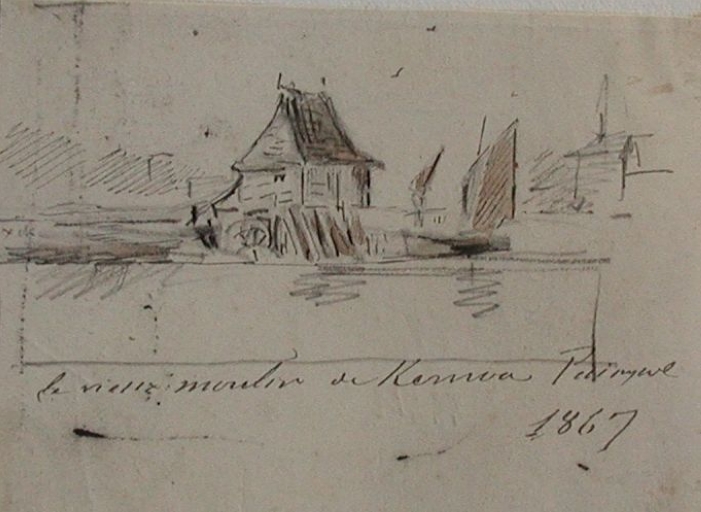 le vieux moulin de Kernoa Paimpol
1867